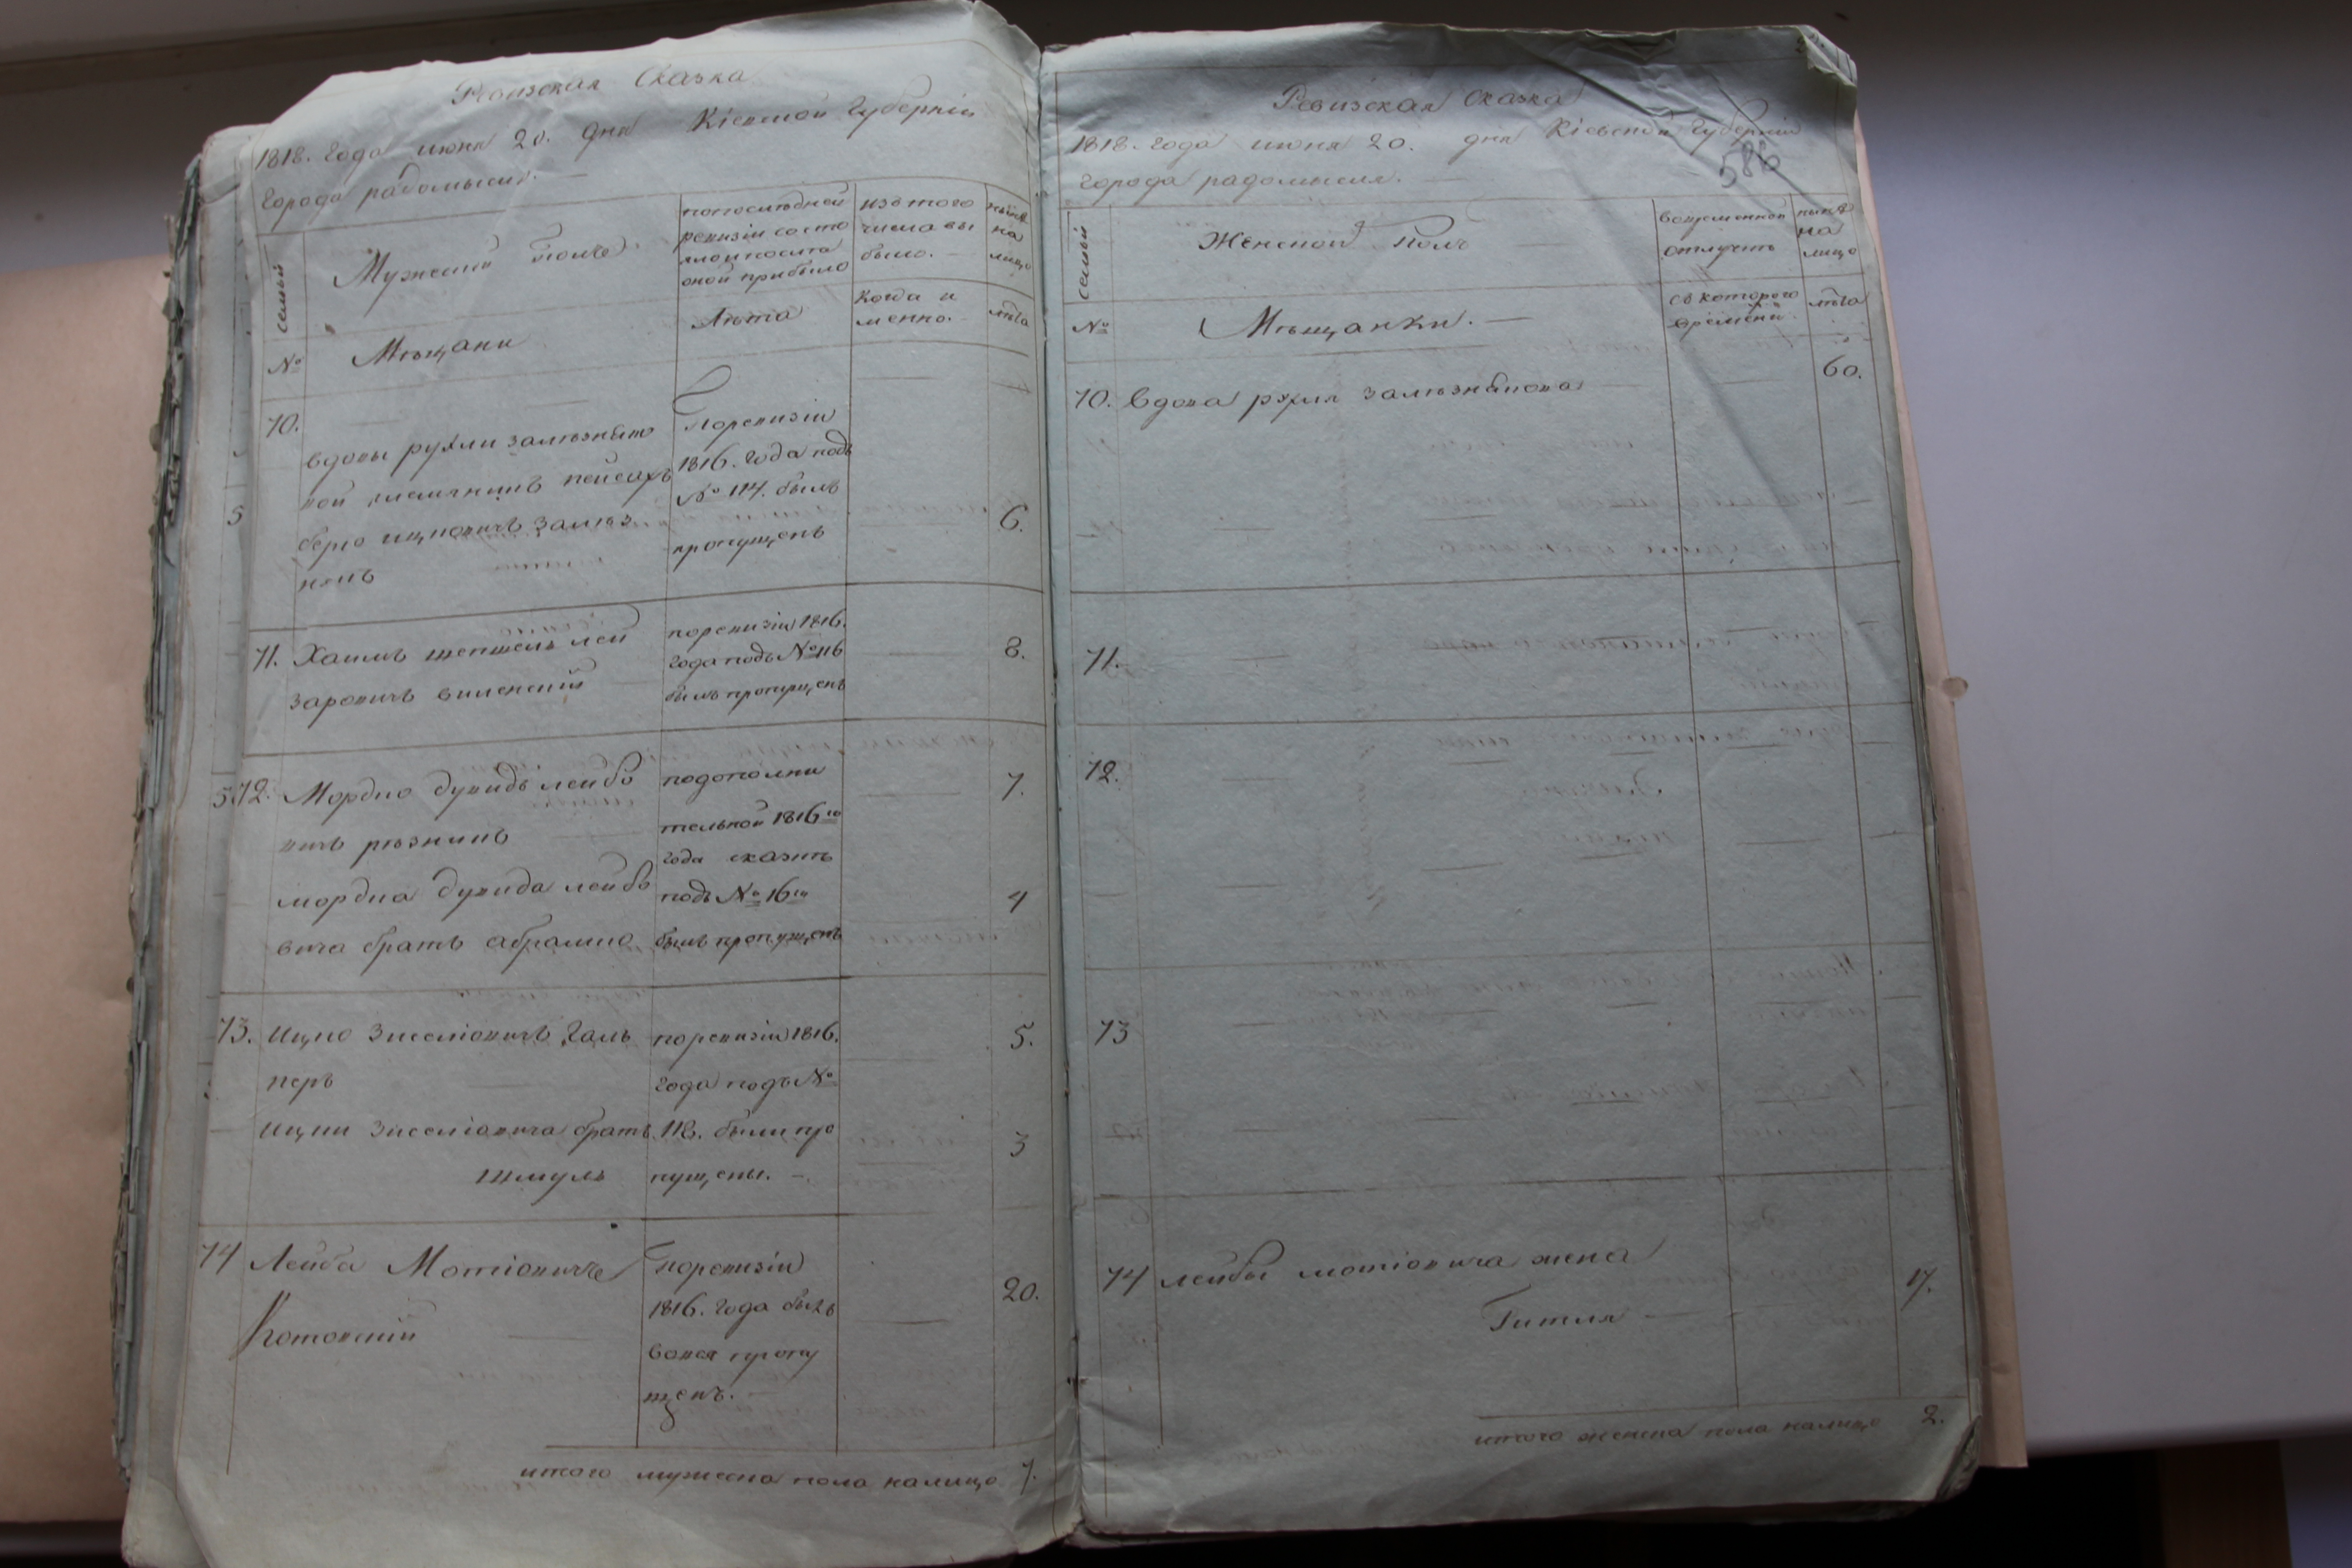 Ревизская Сказка
1818. года июня 20. дня Кіевской Губерніи
города радомысля. —
семьи
Мужеский полъ
попослѣдней
ревизіи состо
яло и после
оной прибыло
изътого
числа вы
было. —
нынѣ
на
лицо
№
Мѣщани
Лѣта
Когда и
менно.
лѣта
70.
вдовы рухли залѣзняко
вой племянникъ пейсахъ
берко ицковичъ залѣз
някъ
Поревизіи
1816. года подъ
№ 114. былъ
пропущенъ
6.
71. Хаимъ шепшель лей
заровичъ виленский
поревизіи 1816.
года подъ № 116
былъ пропущенъ
8.
72. Мордко дувидъ лейбо
вичъ рѣзникъ
мордка дувида лейбо
вича братъ абрамко
подополни
тельной 1816го
года сказкѣ
подъ № 16м
былъ пропущенъ
7.
4
73. Ицко Зиселіовичъ Галь
перъ
Ицки Зиселіовича братъ
шмуль
поревизіи 1816.
года подъ №
118. были про
пущены. —
5.
3
74 Лейба Мотіовичъ
Котовский
Поревизіи
1816. года былъ
вовся пропу
щенъ. —
20.
итого мужеска пола налицо 7.
Ревизская Сказка
1818. года июня 20. дня Кіевской Губерніи
586
города радомысля. —
семьи
Женской полъ
вовременной
отлучкѣ
нынѣ
на
лицо
№
Мѣщанки. —
съ которого
времени.
лѣта
70. вдова рухля залѣзнякова
60.
71.
72.
73
74 лейбы мотіовича жена
Гитля —
17.
итого женска пола налицо 2.